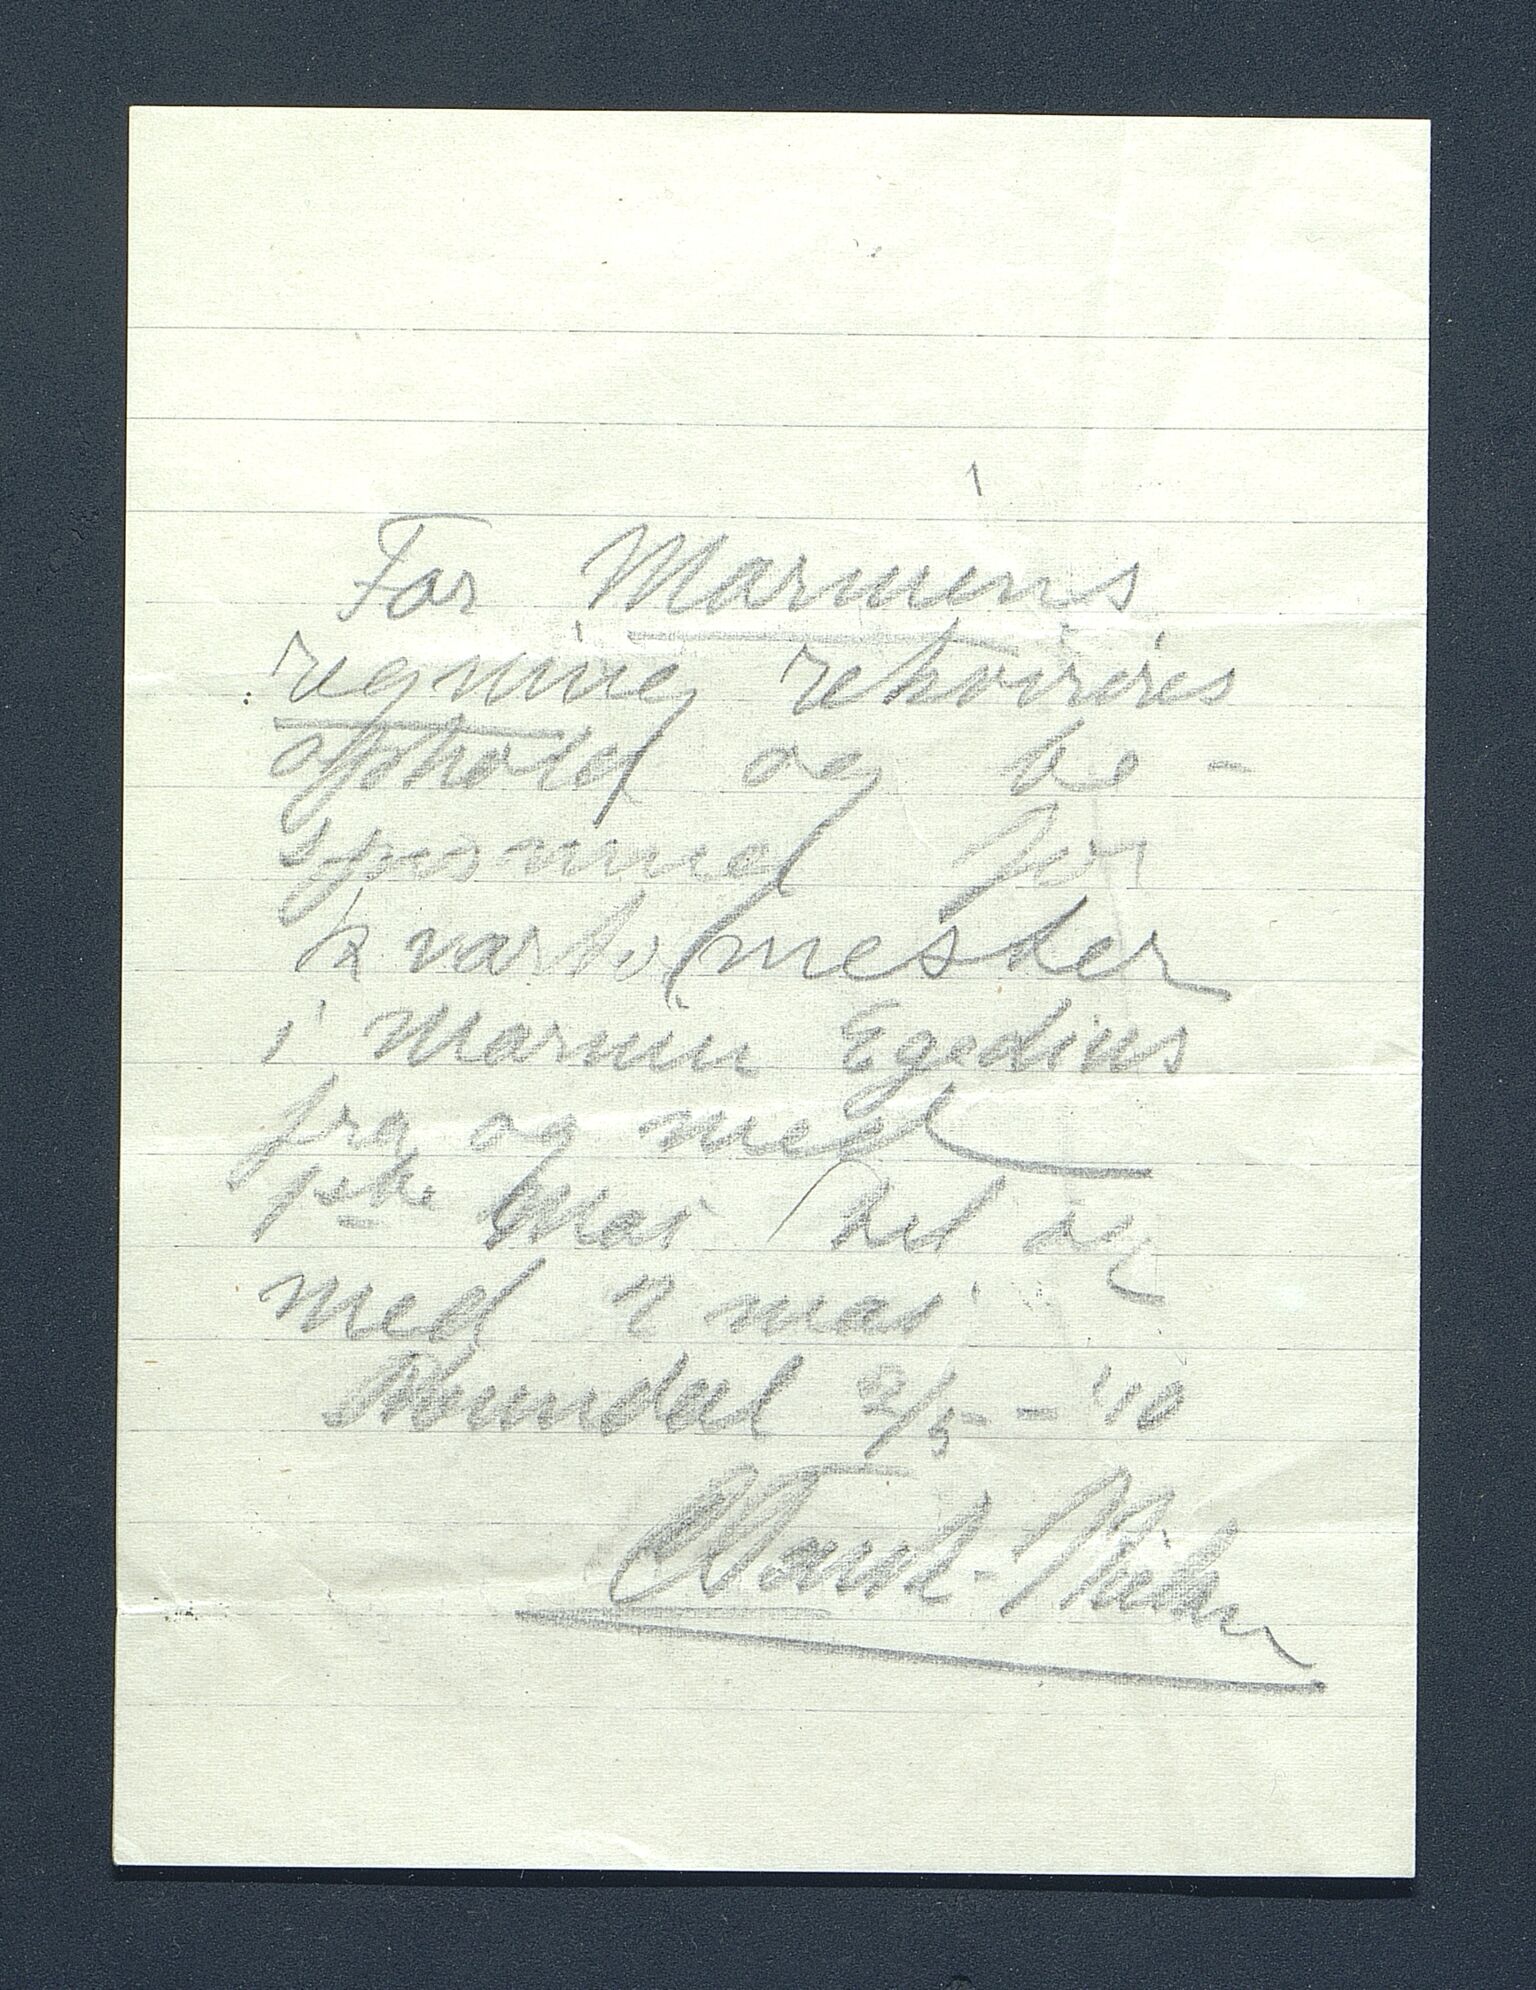 For Marinens
regning rekvireres
ophold og be-
spisning for
kvartermester
i Marinen Egedius
fra og med
1ste Mai til og
med 2 mai
Romsdal 2/5 - '10